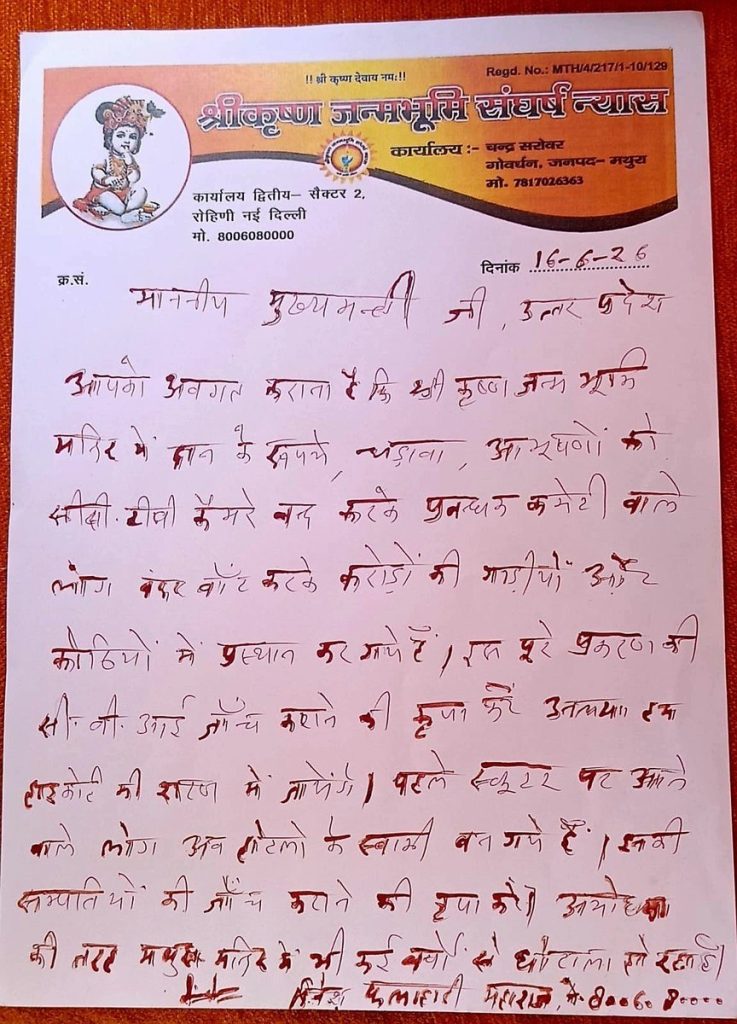 !! श्री कृष्ण देवाय नमः!!
Regd. No.: MTH/4/217/1-10/129
श्रीकृष्ण जन्मभूमि संघर्ष न्यास
कार्यालय :- चन्द्र सरोवर
गोवर्धन, जनपद- मथुरा
मो. 7817026363
कार्यालय द्वितीय- सैक्टर 2,
रोहिणी नई दिल्ली
मो. 8006080000
क्र.सं.
दिनांक 16-6-26
माननीय मुख्यमन्त्री जी, उत्तर प्रदेश
आपको अवगत कराना है कि श्री कृष्ण जन्म भूमि
मन्दिर में दान के रूपये, चढ़ावा, आभूषणों को
सीसी.टीवी कैमरे बन्द करके प्रबन्धक कमेटी वाले
लोग बंदर बाँट करके करोड़ों की गाड़ीयों और
कोठियों में प्रस्थान कर गये हैं। इस पूरे प्रकरण की
सी.बी.आई जाँच कराने की कृपा करें अन्यथा हम
हाइकोर्ट की शरण में जायेंगे। पहले स्कूटर पर आने
वाले लोग अब होटलो के स्वामी बन गये हैं। इनकी
सम्पतियों की जाँच कराने की कृपा करें। अयोध्या
की तरह मथुरा मन्दिर में भी कई वर्षों से घोटाला हो रहा है।
दिनेश फलाहारी महाराज, मो. 8006080000